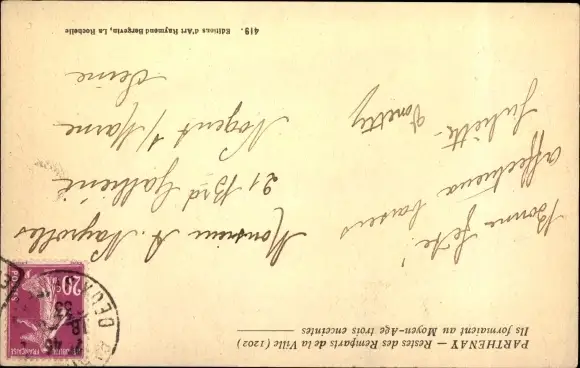 PARTHENAY — Restes des Remparts de la Ville (1202)
Ils formaient au Moyen-Age trois enceintes
Bonne fête!
affectueux baisers
Juliette
Monsieur A.
21 Bvd Galliéni
Nogent s/ Marne
Seine
419. Editions d'Art Raymond Bergevin, La Rochelle
20c
POSTES
FRANÇAISE